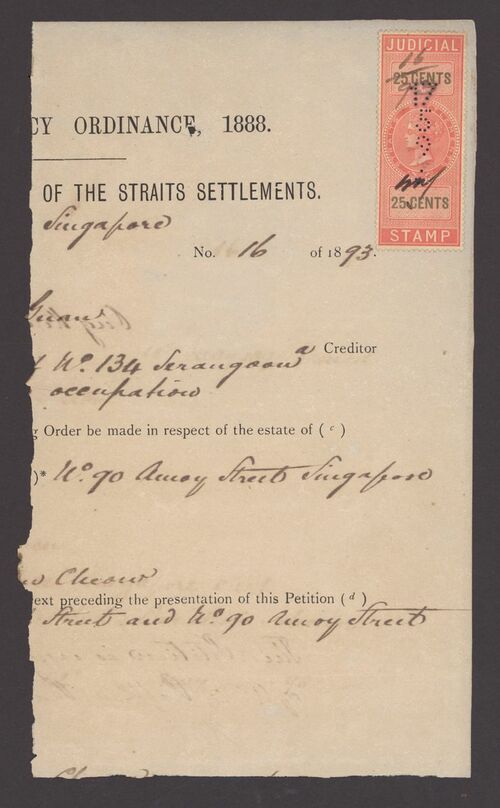 JUDICIAL
16
25 CENTS
CY ORDINANCE, 1888.
OF THE STRAITS SETTLEMENTS.
25 CENTS
STAMP
Singapore
No. 16 of 1893.
Guan
Nº. 134 Serangoon a Creditor
occupation
g Order be made in respect of the estate of (c)
)* Nº. 90 Amoy Street Singapore
Cheow
ext preceding the presentation of this Petition (d)
Street and Nº 90 Amoy Street